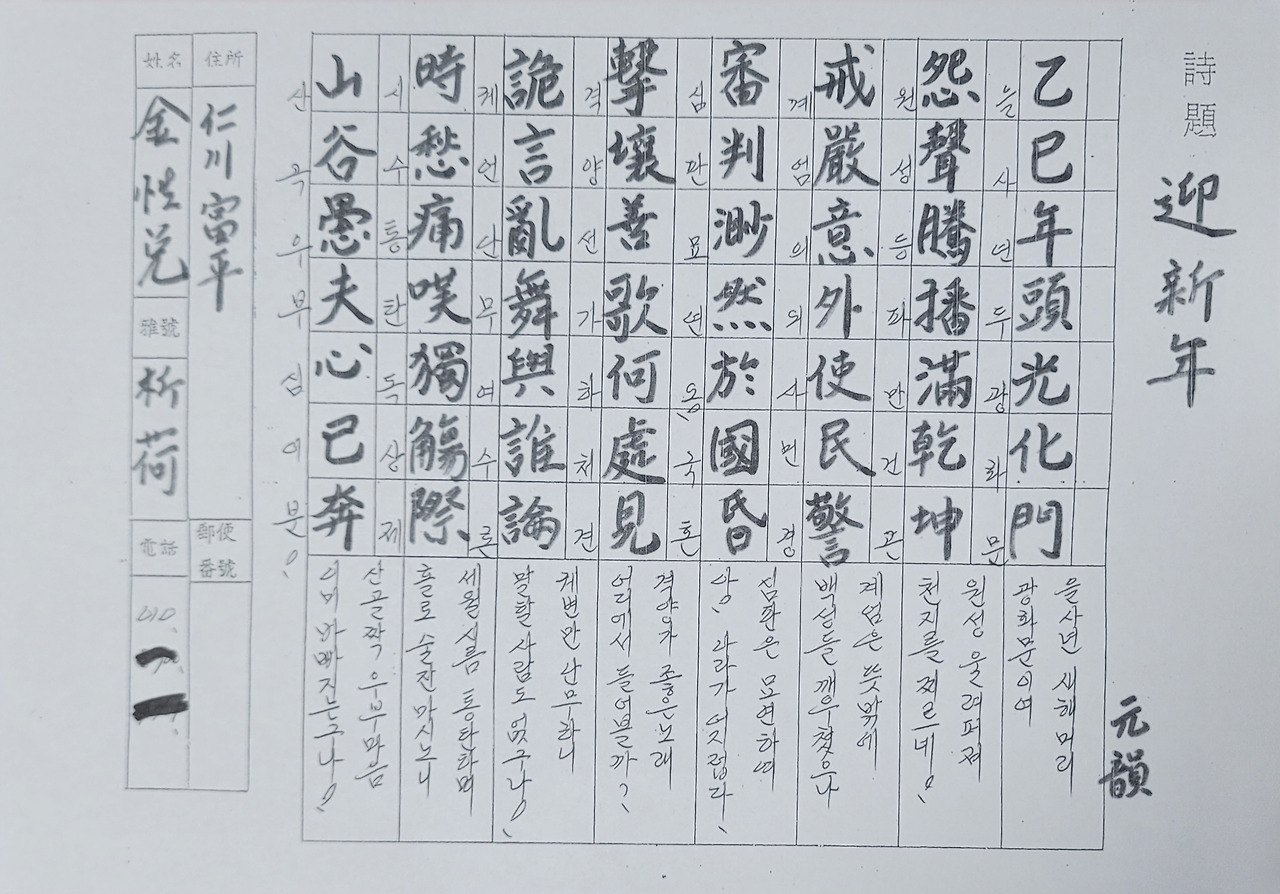 詩題 迎新年
元韻
乙巳年頭光化門
을사년두광화문
을사년 새해머리
광화문이여
怨聲騰播滿乾坤
원성등파만건곤
원성 울려퍼져
천지를 찌르네!
戒嚴意外使民警
계엄의외사민경
계엄은 뜻밖에
백성들 깨우쳤으나
審判渺然於國昏
심판묘연어국혼
심판은 묘연하여
아, 나라가 어지럽다!
擊壤善歌何處見
격양선가하처견
격양가 좋은노래
어디에서 들어볼까?
詭言亂舞與誰論
궤언난무여수론
궤변만 난무하니
말할 사람도 없구나!
時愁痛嘆獨觴際
시수통탄독상제
세월시름 통탄하며
홀로 술잔 마시노니
山谷愚夫心已奔
산곡우부심이분!
산골짝 우부마음
이미 바빠지는구나!
住所 仁川 富平
郵便番號
姓名 金性兌
雅號 析荷
電話 010